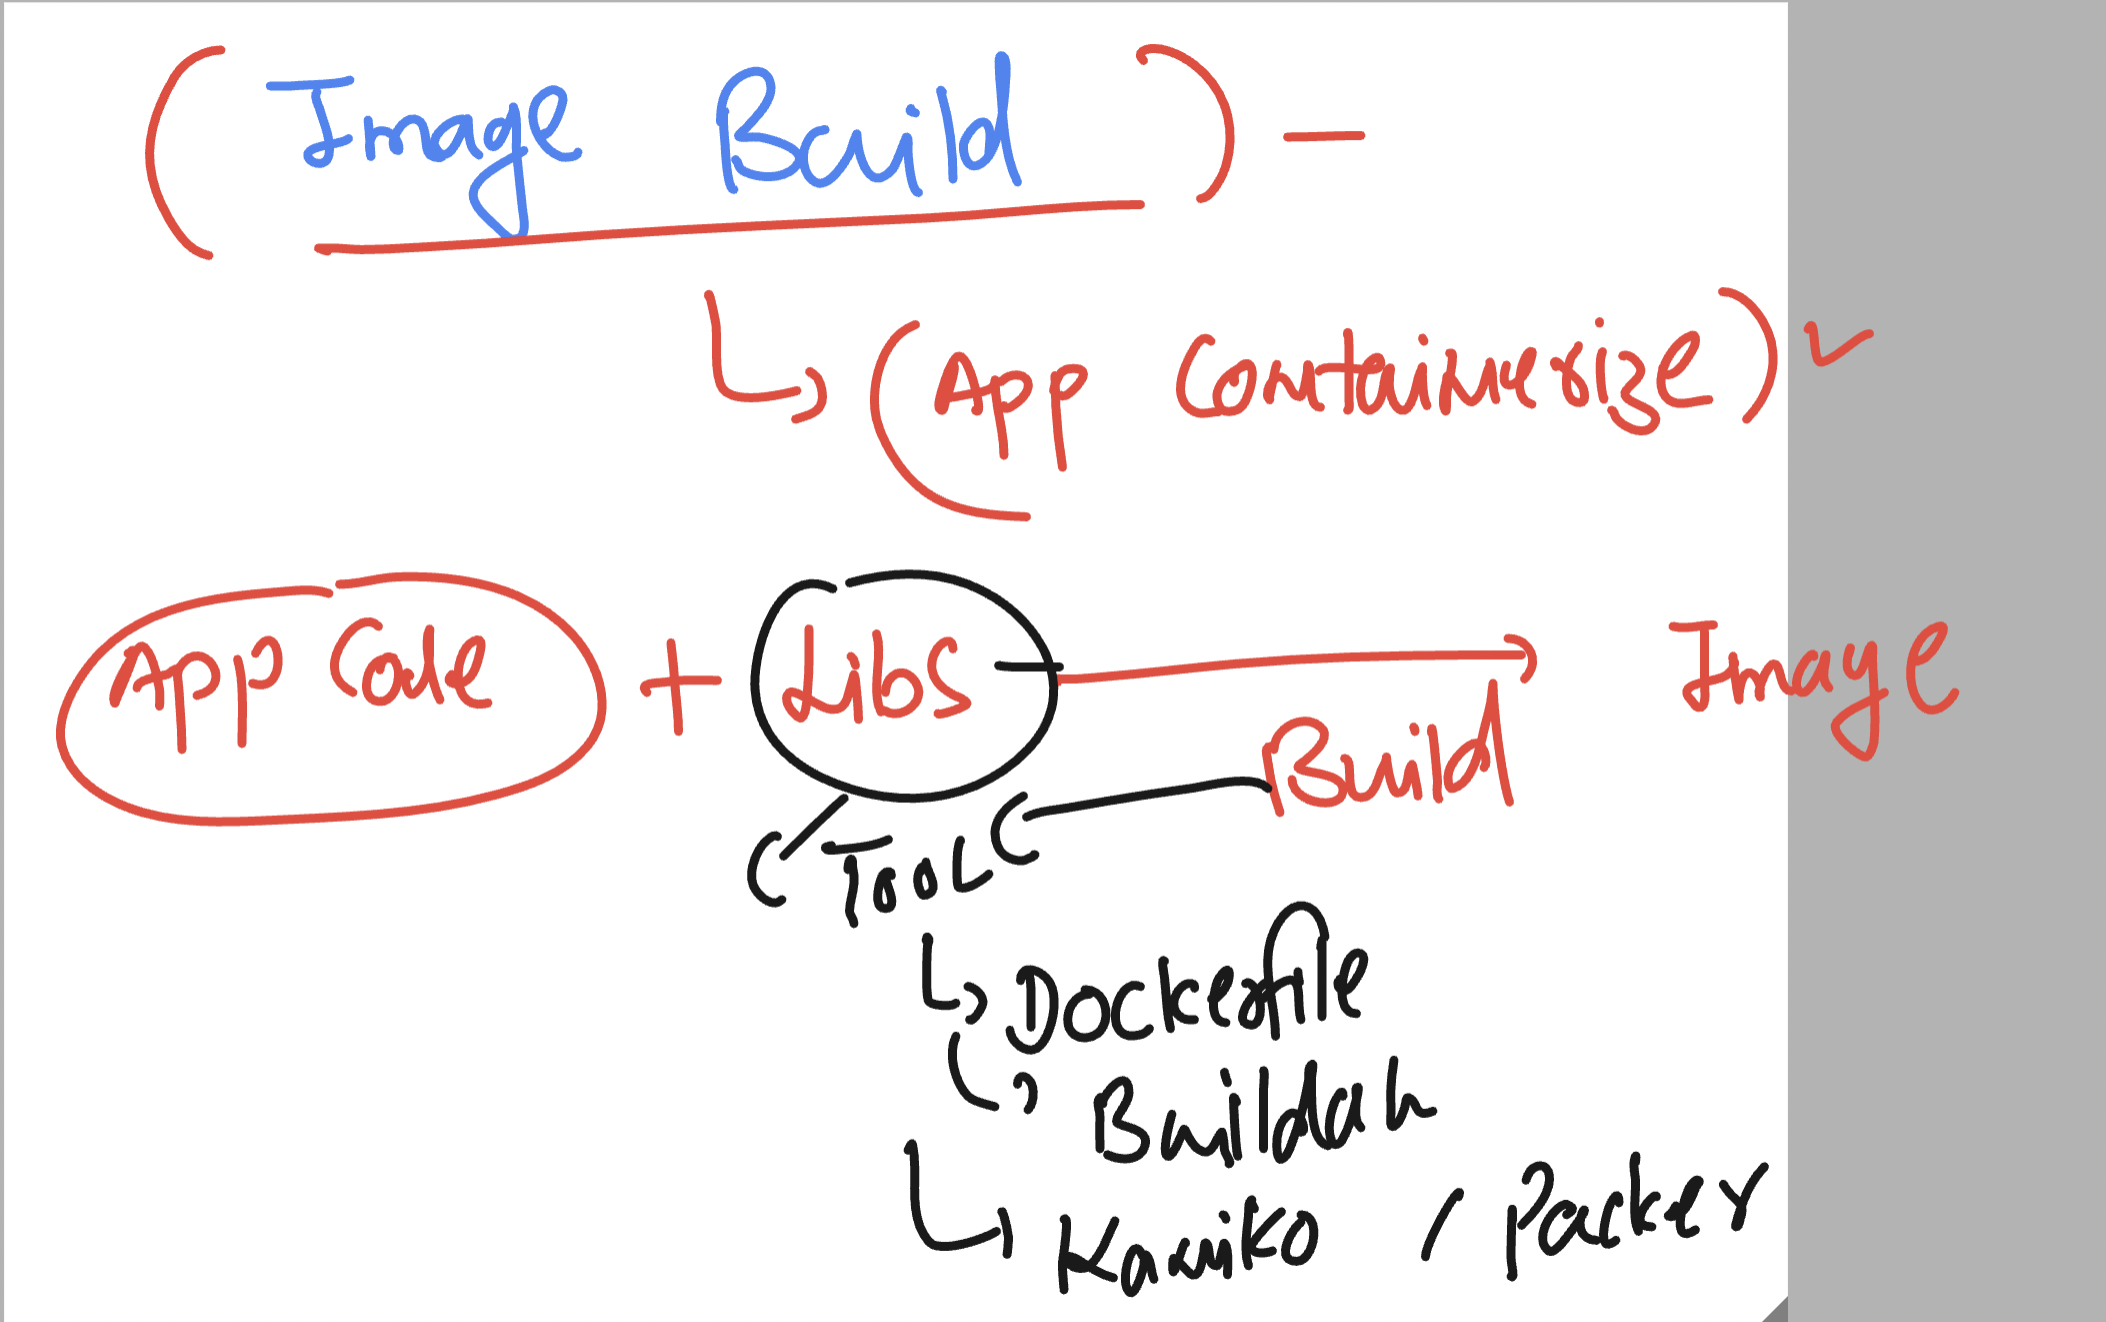 ( Image Build ) -
↳ ( App Containerize ) ✓
App Code + Libs → Image
Build
Tool
↳ Dockerfile
↳ Buildah
↳ Kaniko / Packer